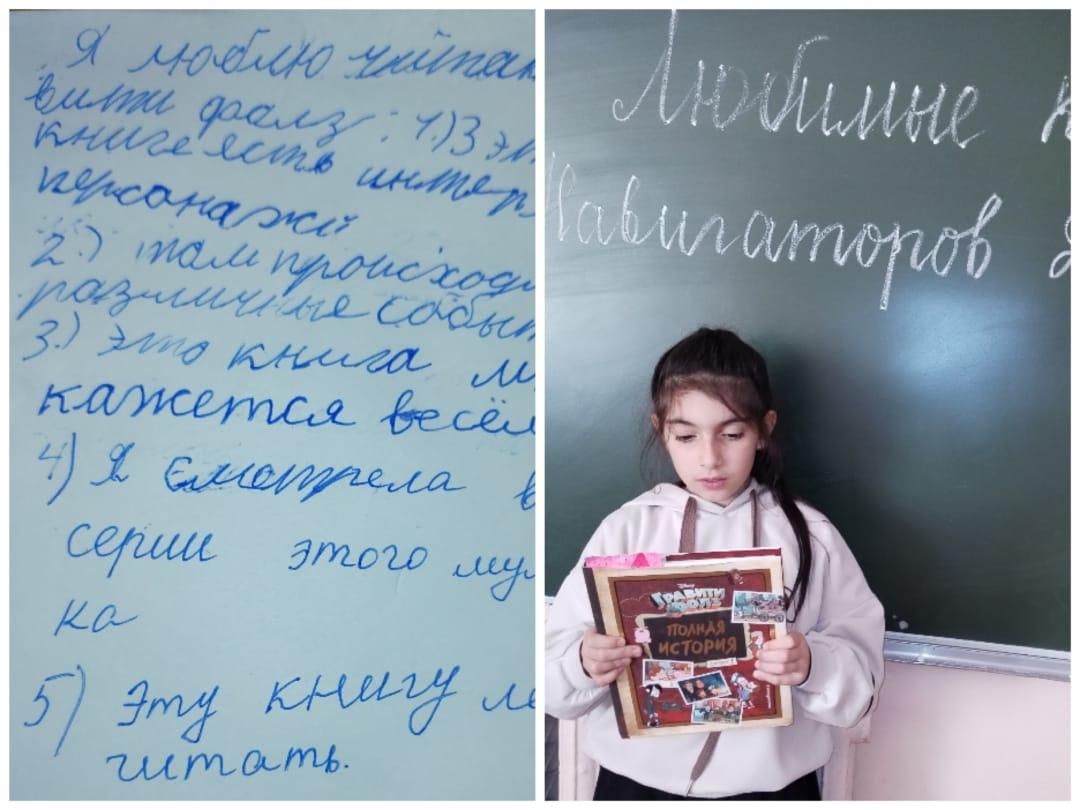 Я люблю читат
вити фолз: 1.) В эт
книге есть интер
персонажи
2.) там происходи
различные событ
3.) это книга м
кажется весёл
4) Я смотрела в
серии этого мул
ка
5) Эту книгу ле
читать.
Любимые к
Навигаторов
Disney
ГРАВИТИ
ФОЛЗ
ПОЛНАЯ
ИСТОРИЯ